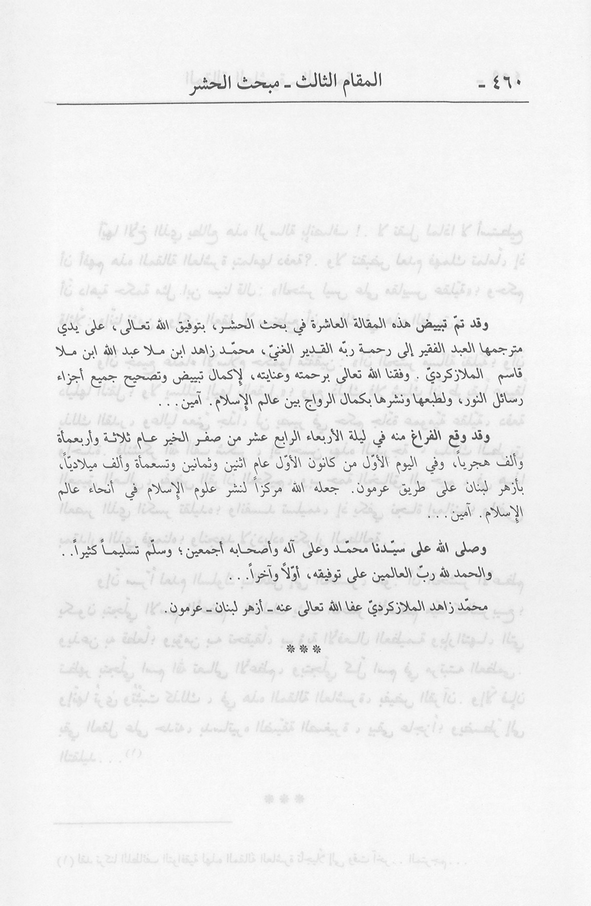 ٤٦٠ - المقام الثالث - مبحث الحشر
وقد تمّ تبييض هذه المقالة العاشرة في بحث الحشر، بتوفيق الله تعالى، على يدي
مترجمها العبد الفقير إلى رحمة ربّه القدير الغنيّ، محمّد زاهد ابن ملا عبد الله ابن ملا
قاسم الملازكرديّ. وفقنا الله تعالى برحمته وعنايته، لإكمال تبييض وتصحيح جميع أجزاء
رسائل النور، ولطبعها ونشرها بكمال الرواج بين عالم الإسلام. آمين...
وقد وقع الفراغ منه في ليلة الأربعاء الرابع عشر من صفر الخير عام ثلاثة وأربعمأة
وألف هجرياً، وفي اليوم الأوّل من كانون الأوّل عام اثنين وثمانين وتسعمأة وألف ميلاديّاً،
بأزهر لبنان على طريق عرمون. جعله الله مركزاً لنشر علوم الإسلام في أنحاء عالم
الإسلام. آمين...
وصلى الله على سيّدنا محمّد وعلى آله وأصحابه أجمعين؛ وسلّم تسليماً كثيراً..
والحمد لله ربّ العالمين على توفيقه، أوّلاً وآخراً...
محمّد زاهد الملازكرديّ عفا الله تعالى عنه - أزهر لبنان - عرمون.
***